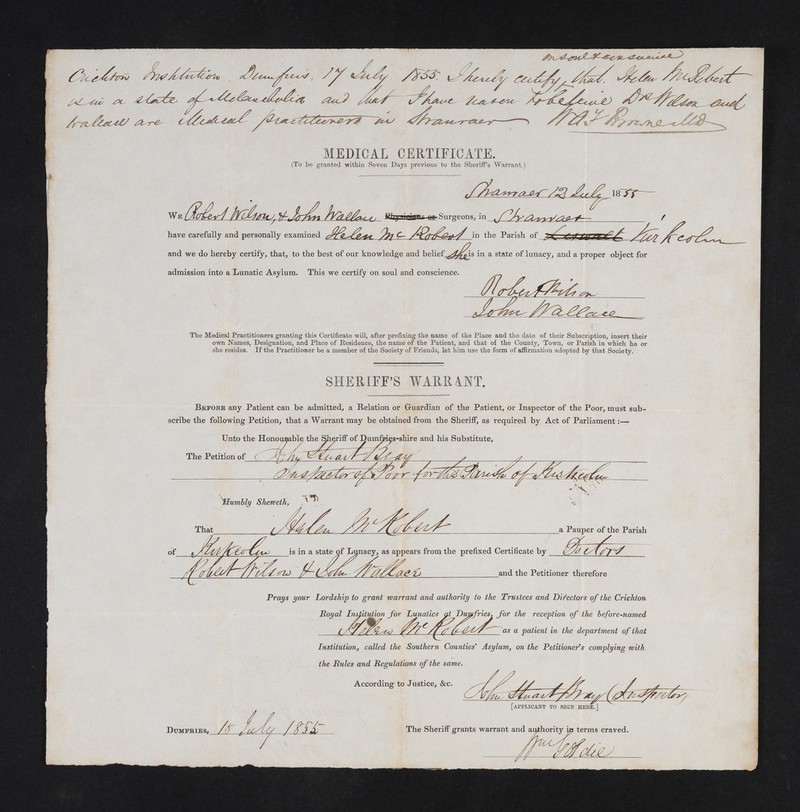 on soul & conscience
Crichton Institution Dumfries, 17 July 1855. I hereby certify, that. Helen McRobert
is in a state of Melancholia and that I have reason to believe Drs Wilson and
Wallace are Medical practitioners in Stranraer W A F Browne MD
MEDICAL CERTIFICATE.
(To be granted within Seven Days previous to the Sheriff's Warrant.)
Stranraer 12 July 1855
WE Robert Wilson, & John Wallace Physicians or Surgeons, in Stranraer
have carefully and personally examined Helen Mc Robert in the Parish of Leswalt Kirkcolm
and we do hereby certify, that, to the best of our knowledge and belief she is in a state of lunacy, and a proper object for
admission into a Lunatic Asylum. This we certify on soul and conscience.
Robert Wilson
John Wallace
The Medical Practitioners granting this Certificate will, after prefixing the name of the Place and the date of their Subscription, insert their
own Names, Designation, and Place of Residence, the name of the Patient, and that of the County, Town, or Parish in which he or
she resides. If the Practitioner be a member of the Society of Friends, let him use the form of affirmation adopted by that Society.
SHERIFF'S WARRANT.
BEFORE any Patient can be admitted, a Relation or Guardian of the Patient, or Inspector of the Poor, must sub-
scribe the following Petition, that a Warrant may be obtained from the Sheriff, as required by Act of Parliament:—
Unto the Honourable the Sheriff of Dumfries-shire and his Substitute,
The Petition of John Stuart Bray
Inspector of Poor for the Parish of Kirkcolm
Humbly Sheweth,
That Helen McRobert a Pauper of the Parish
of Kirkcolm is in a state of Lunacy, as appears from the prefixed Certificate by Doctors
Robert Wilson & John Wallace and the Petitioner therefore
Prays your Lordship to grant warrant and authority to the Trustees and Directors of the Crichton
Royal Institution for Lunatics at Dumfries, for the reception of the before-named
Helen McRobert as a patient in the department of that
Institution, called the Southern Counties' Asylum, on the Petitioner's complying with
the Rules and Regulations of the same.
According to Justice, &c.
John Stuart Bray (Inspector,
[APPLICANT TO SIGN HERE.]
DUMFRIES, 18 July 1855 The Sheriff grants warrant and authority in terms craved.